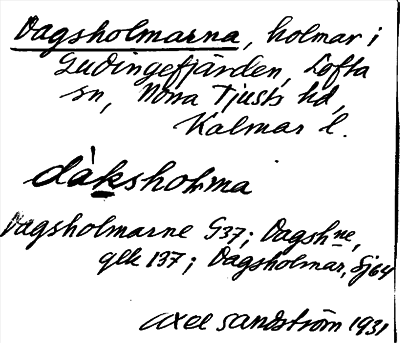 Dagsholmarna, holmar i
Gudingefjärden, Lofta
sn, Norra Tjusts hd,
Kalmar l.
dàksholma
Dagsholmarne G37; Dagshne,
glk 137; Dagsholmar, Sj64
Axel Sandström 1931